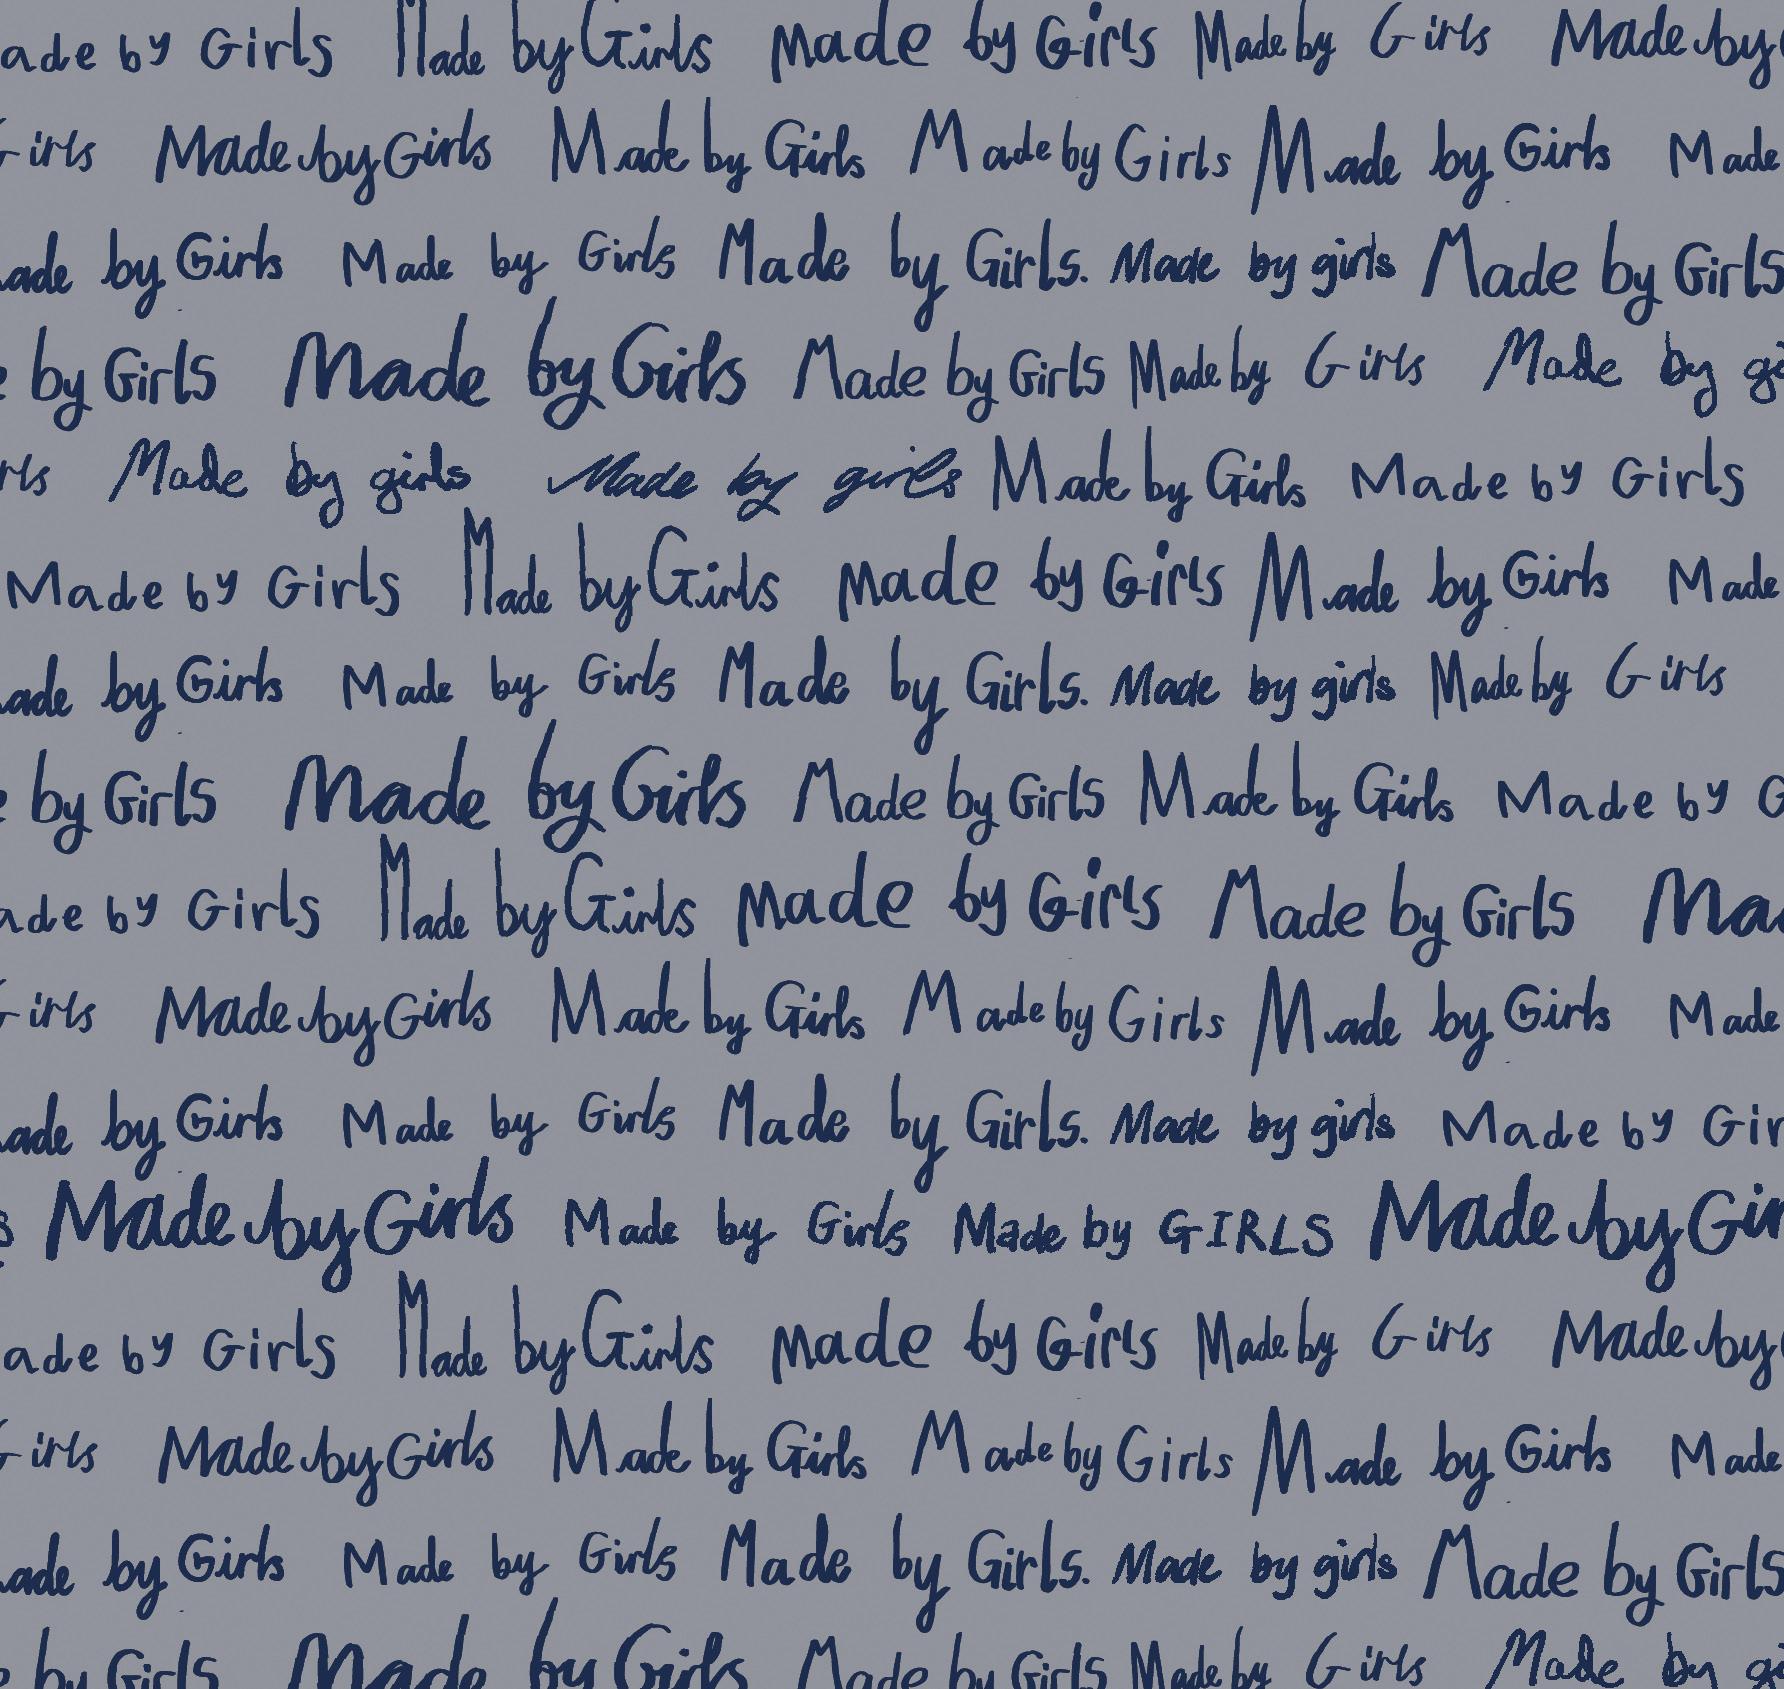 ade by Girls Made by Girls Made by Girls Made by Girls Made by
Girls Made by Girls Made by Girls Made by Girls Made by Girls Made
ade by Girls Made by Girls Made by Girls. Made by girls Made by Girls
e by Girls Made by Girls Made by Girls Made by Girls Made by gi
rls Made by girls Made by girls Made by Girls Made by Girls
Made by Girls Made by Girls Made by Girls Made by Girls Made
ade by Girls Made by Girls Made by Girls. Made by girls Made by Girls
e by Girls Made by Girls Made by Girls Made by Girls Made by G
ade by Girls Made by Girls Made by Girls Made by Girls Ma
Girls Made by Girls Made by Girls Made by Girls Made by Girls Made
ade by Girls Made by Girls Made by Girls. Made by girls Made by Gir
s Made by Girls Made by Girls Made by GIRLS Made by Gir
ade by Girls Made by Girls Made by Girls Made by Girls Made by
Girls Made by Girls Made by Girls Made by Girls Made by Girls Made
ade by Girls Made by Girls Made by Girls. Made by girls Made by Girls
e by Girls Made by Girls Made by Girls Made by Girls Made by gi